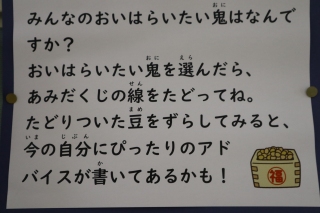 みんなのおいはらいたい鬼はなんで
すか？
おいはらいたい鬼を選んだら、
あみだくじの線をたどってね。
たどりついた豆をずらしてみると、
今の自分にぴったりのアド
バイスが書いてあるかも！
福